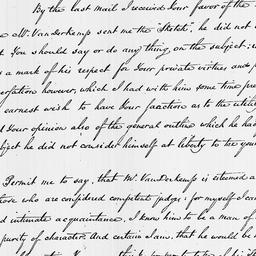 By the last Mail I received Your favor of the
Mr. VanderKemp sent me the "Sketch", he did not
You should say or do any thing, on the subject; u
a mark of his respect for Your private virtues and p
versation however, which I had with him some time pre
earnest wish to have Your sanction as to the utili
Your opinion also of the general outline which he had
ject he did not consider himself at liberty to be you
Permit me to say, that Mr. VanDerKemp is esteemed a
those who are considered competent judges; for myself I can
d intimate acquaintance, I know him to be a man of
purity of character. And certain I am, that he would be